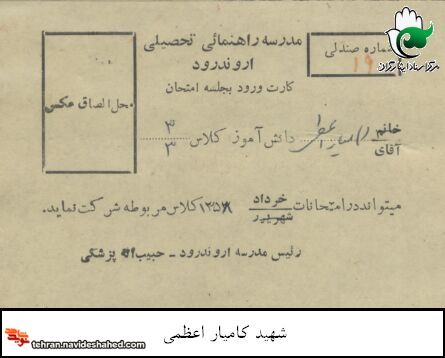 مدرسه راهنمائی تحصیلی
اروندرود
کارت ورود بجلسه امتحان
شماره صندلی
۱۹
محل الصاق عکس
خانم
آقای
کامیار اعظمی دانش آموز کلاس ۳/۳
میتواند در امتحانات خرداد
شهریور
۱۳۵۸ کلاس مربوطه شرکت نماید.
رئیس مدرسه اروندرود - حبیب اله پزشکی
شهید کامیار اعظمی
مرکز اسناد ایثارگران
tehran.navideshahed.com